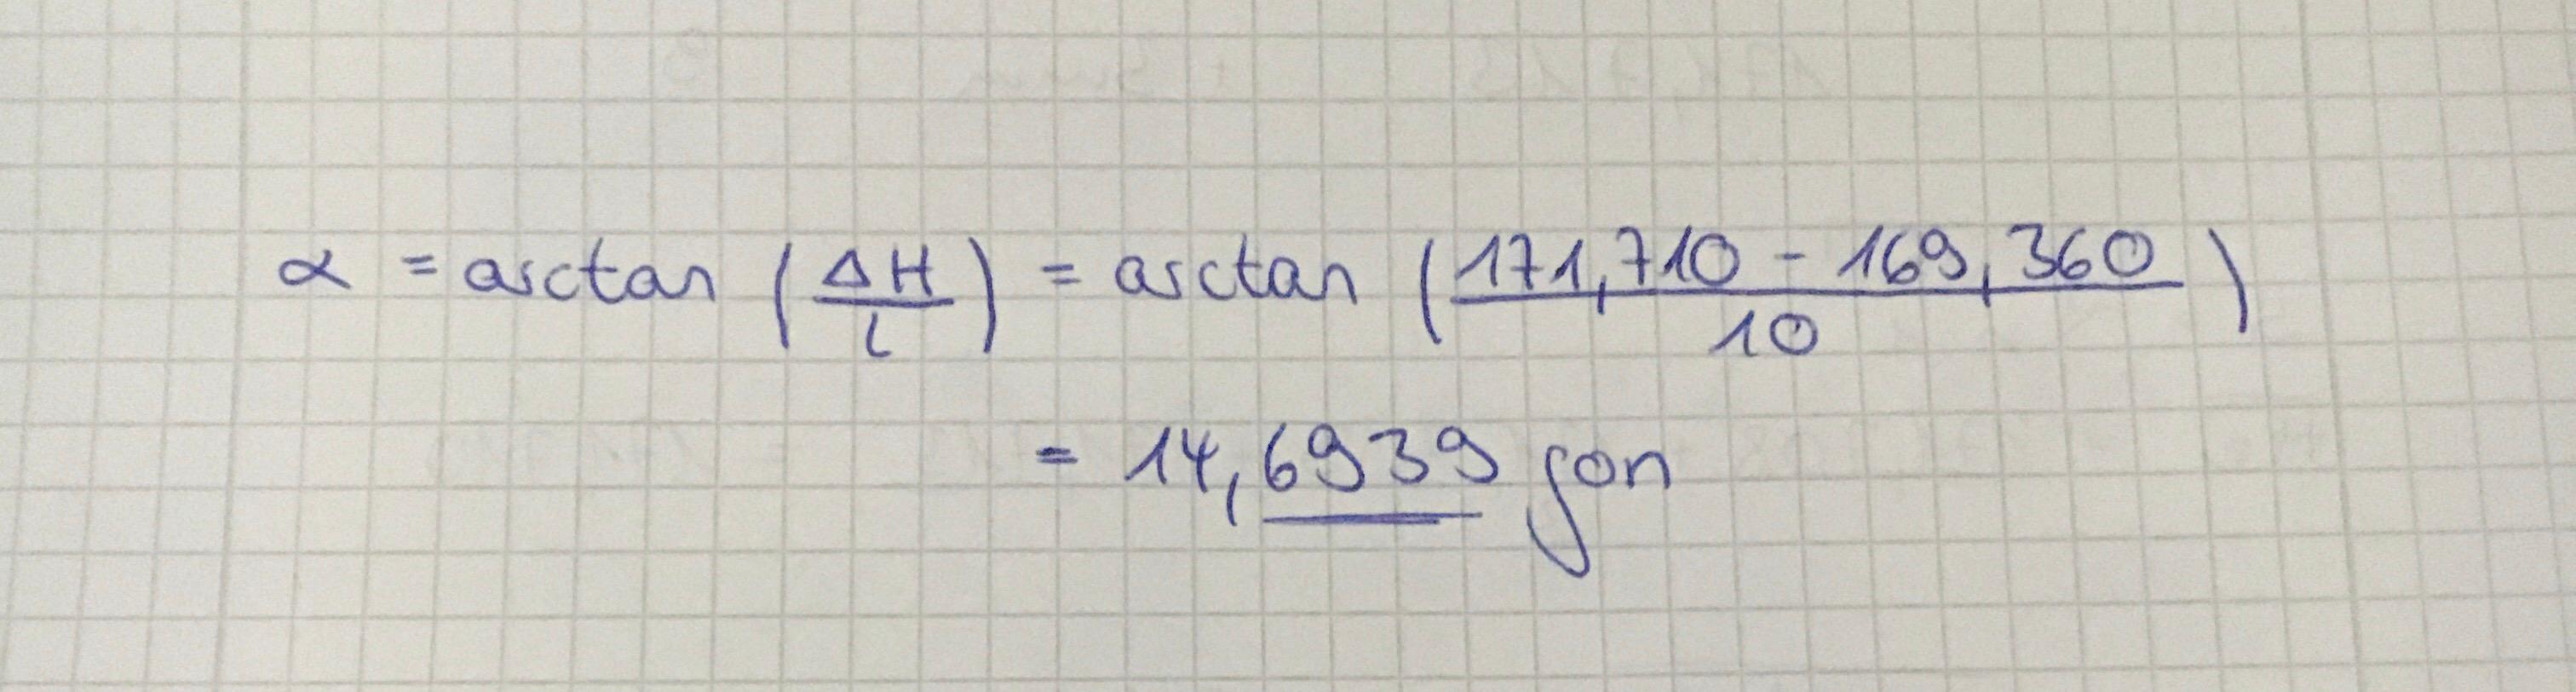 α = arctan (ΔH/l) = arctan (171,710 - 169,360/10)
= 14,6939 gon